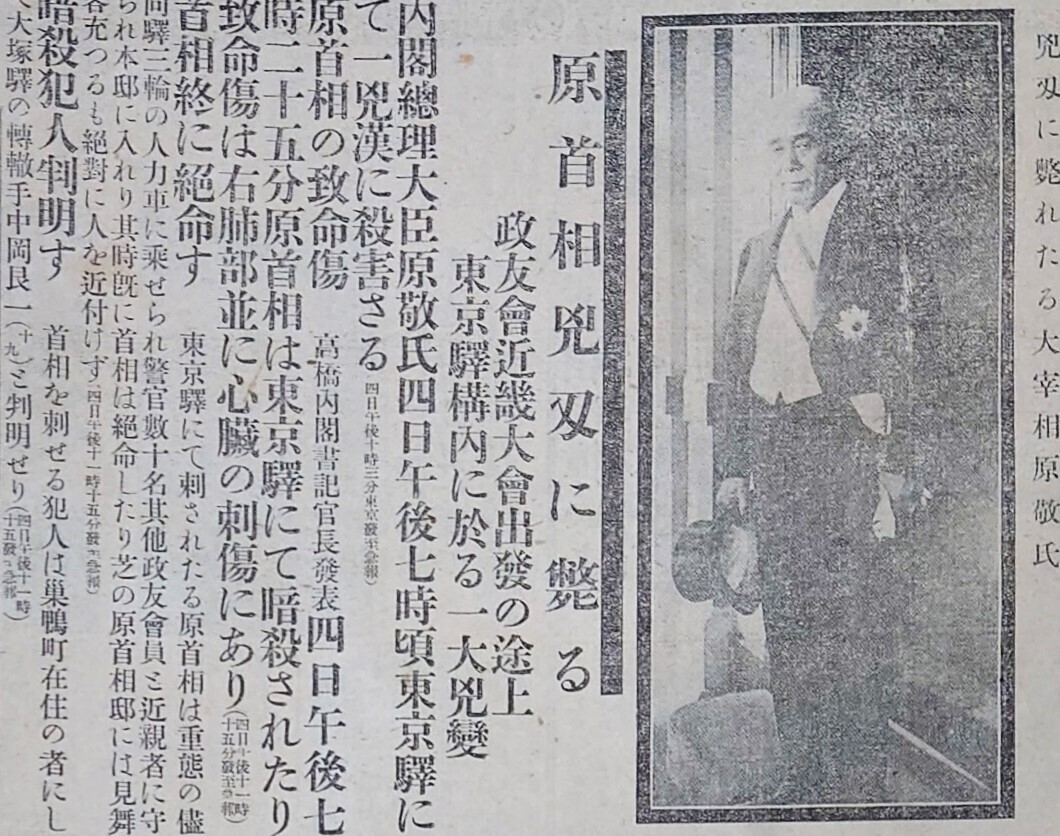 兇刄に斃れたる大宰相原敬氏
原首相兇刄に斃る
政友會近畿大會出發の途上
東京驛構內に於る一大兇變
內閣總理大臣原敬氏四日午後七時頃東京驛に
て一兇漢に殺害さる(四日午後十時三分東京發至急報)
原首相の致命傷 高橋內閣書記官長發表四日午後七
時二十五分原首相は東京驛にて暗殺されたり
致命傷は右肺部並に心臟の刺傷にあり(四日午後十一時十五分發至急報)
首相終に絕命す 東京驛にて刺されたる原首相は重態の儘
同驛三輪の人力車に乘せられ警官數十名其他政友會員と近親者に守
られ本邸に入れり其時旣に首相は絕命したり芝の原首相邸には見舞
客充つるも絕對に人を近付けず(四日午後十一時十五分發至急報)
暗殺犯人判明す 首相を刺せる犯人は巢鴨町在住の者にし
て大塚驛の轉轍手中岡艮一(十九)と判明せり(四日午後十一時十五發至急報)